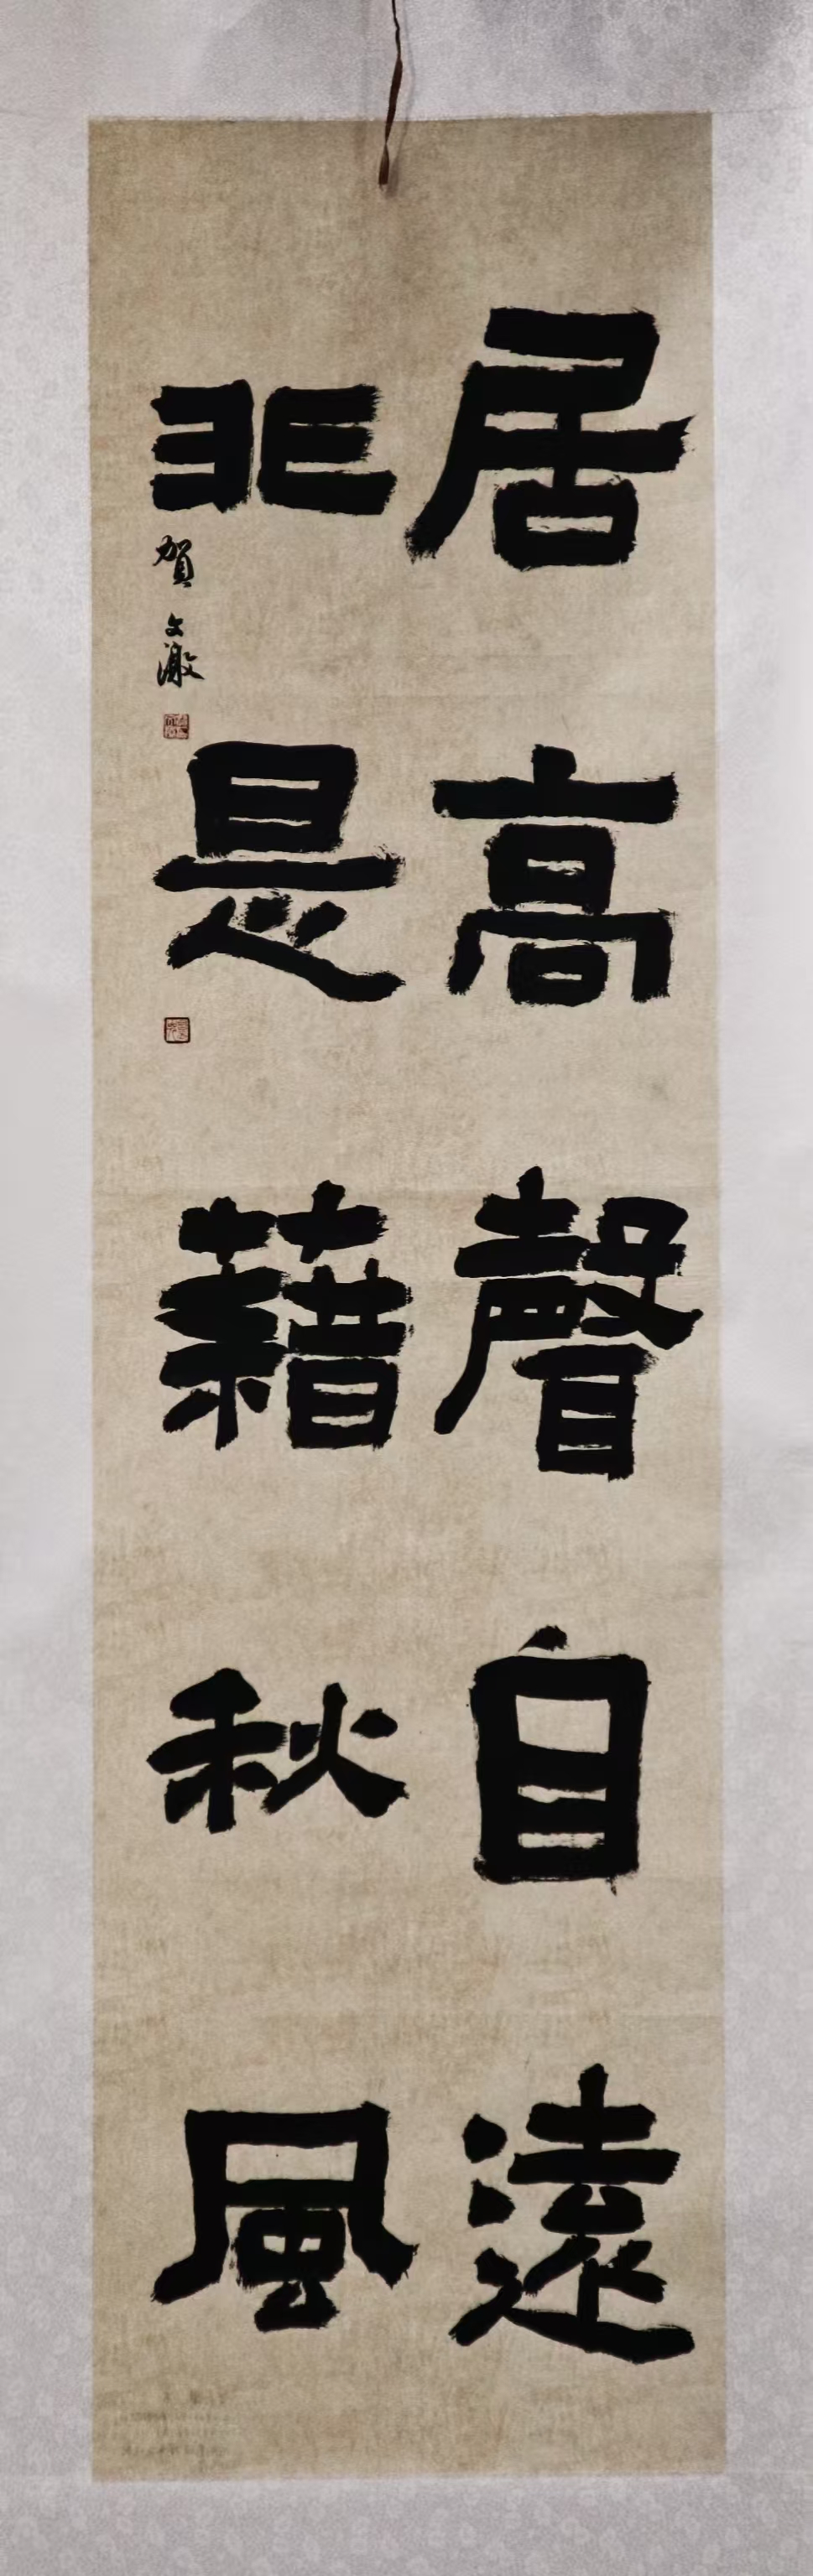 居高聲自遠
非是藉秋風
賀文